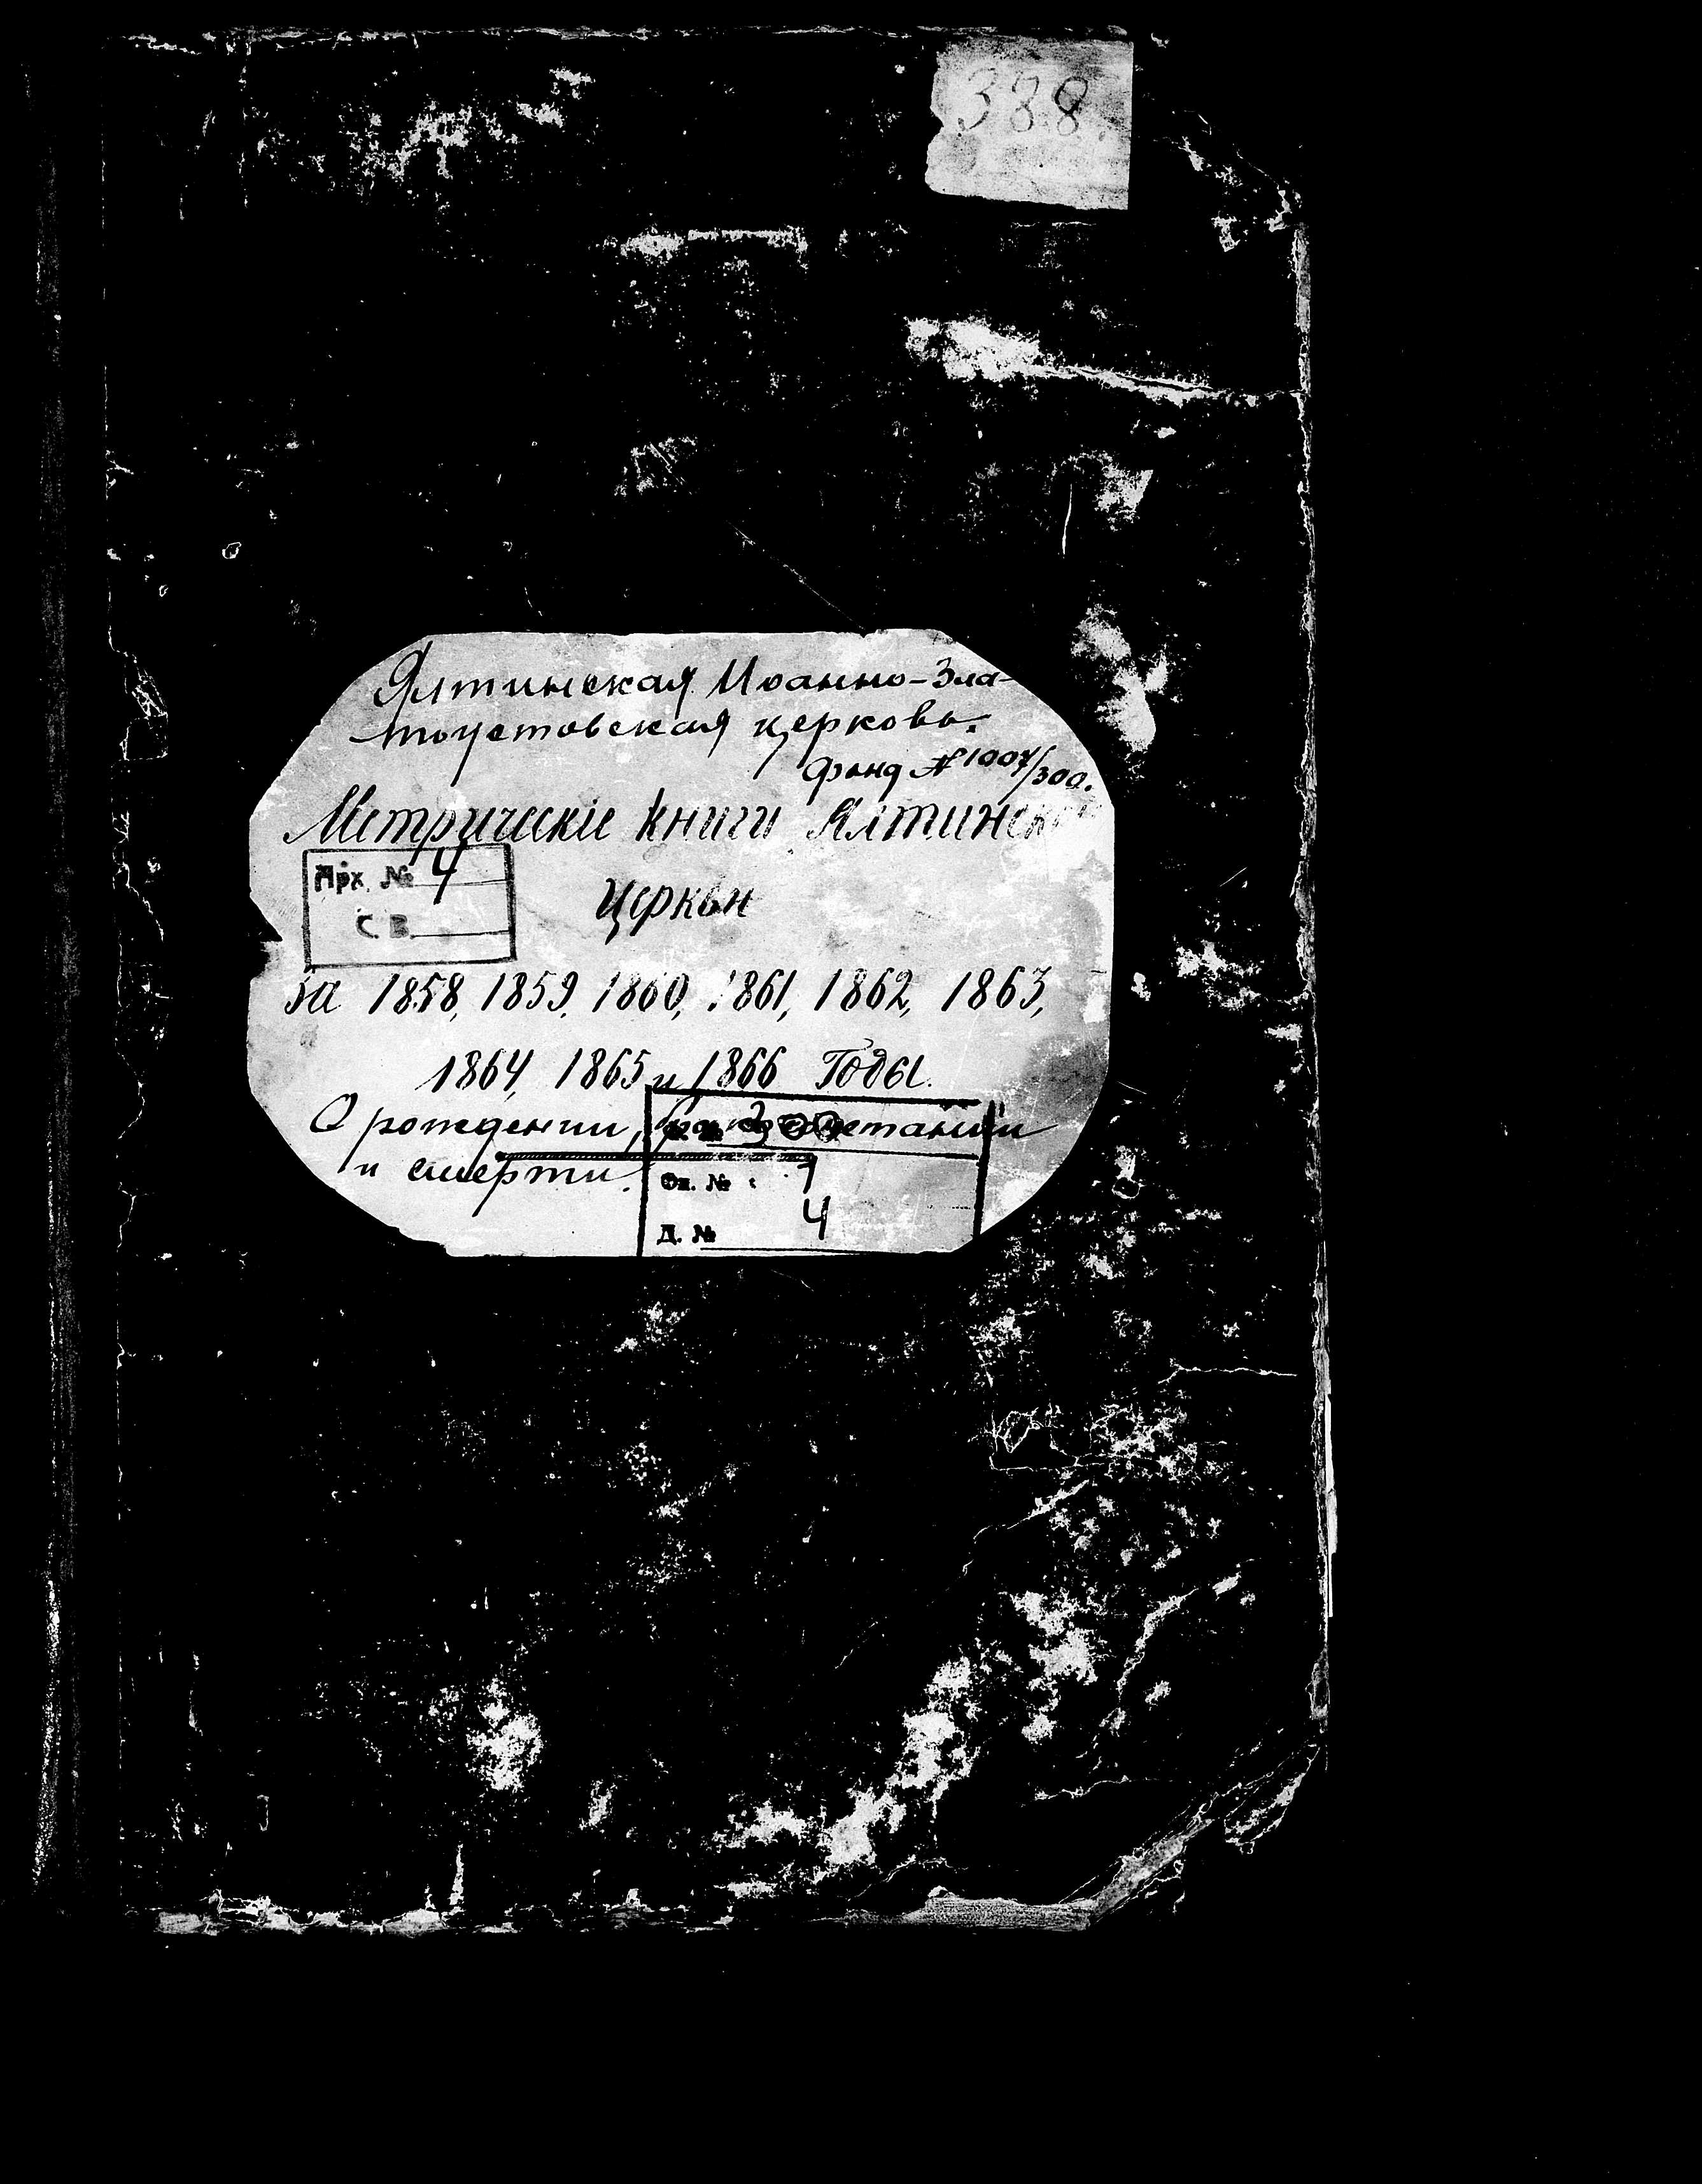 388.
Ялтинская Иоанно-Зла-
тоустовская церковь.
Фонд № 1007/300.
Метрическіе книги Ялтинской
Арх. № 4
Церкви
С В
За 1858, 1859, 1860, 1861, 1862, 1863,
1864, 1865 и 1866 Годы.
О рождении, бракосочетании
300
и смерти.
Оп. № 1
Д. № 4